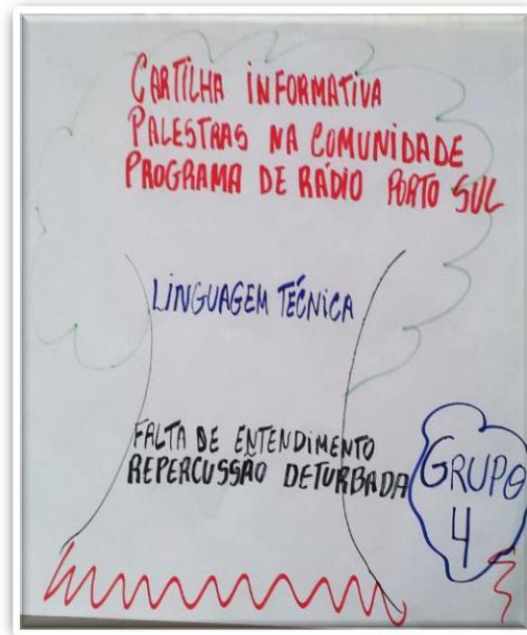 CARTILHA INFORMATIVA
PALESTRAS NA COMUNIDADE
PROGRAMA DE RÁDIO PORTO SUL
LINGUAGEM TÉCNICA
FALTA DE ENTENDIMENTO
REPERCUSSÃO DETURBADA
GRUPO
4